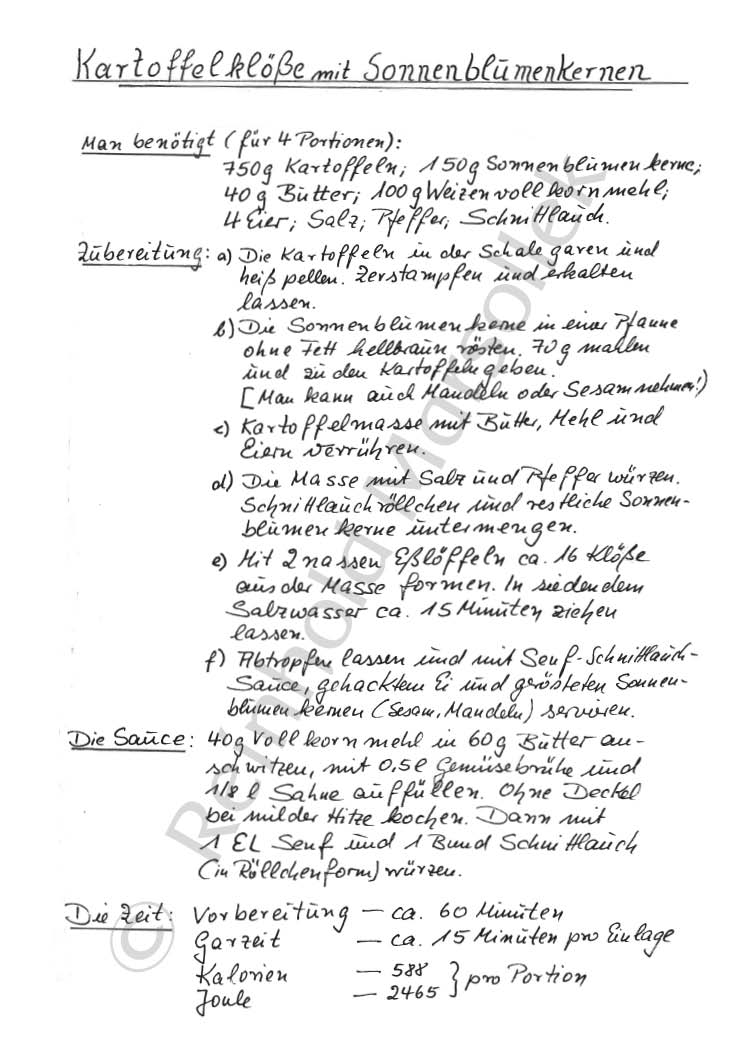 Kartoffelklöße mit Sonnenblumenkernen
Man benötigt (für 4 Portionen):
750g Kartoffeln; 150g Sonnenblumenkerne;
40g Butter; 100g Weizenvollkornmehl;
4 Eier; Salz; Pfeffer; Schnittlauch.
Zubereitung: a) Die Kartoffeln in der Schale garen und
heiß pellen. Zerstampfen und erkalten
lassen.
b) Die Sonnenblumenkerne in einer Pfanne
ohne Fett hellbraun rösten. 70g mahlen
und zu den Kartoffeln geben.
[Man kann auch Mandeln oder Sesam nehmen!)
c) Kartoffelmasse mit Butter, Mehl und
Eiern verrühren.
d) Die Masse mit Salz und Pfeffer würzen.
Schnittlauchröllchen und restliche Sonnen-
blumenkerne untermengen.
e) Mit 2 nassen Eßlöffeln ca. 16 Klöße
aus der Masse formen. In siedendem
Salzwasser ca. 15 Minuten ziehen
lassen.
f) Abtropfen lassen und mit Senf-Schnittlauch-
Sauce, gehacktem Ei und gerösteten Sonnen-
blumenkernen (Sesam, Mandeln) servieren.
Die Sauce: 40g Vollkornmehl in 60g Butter an-
schwitzen, mit 0,5l Gemüsebrühe und
1/8 l Sahne auffüllen. Ohne Deckel
bei milder Hitze kochen. Dann mit
1 EL Senf und 1 Bund Schnittlauch
(in Röllchenform) würzen.
Die Zeit: Vorbereitung — ca. 60 Minuten
Garzeit — ca. 15 Minuten pro Einlage
Kalorien — 588 } pro Portion
Joule — 2465
© Reinhold Marsollek